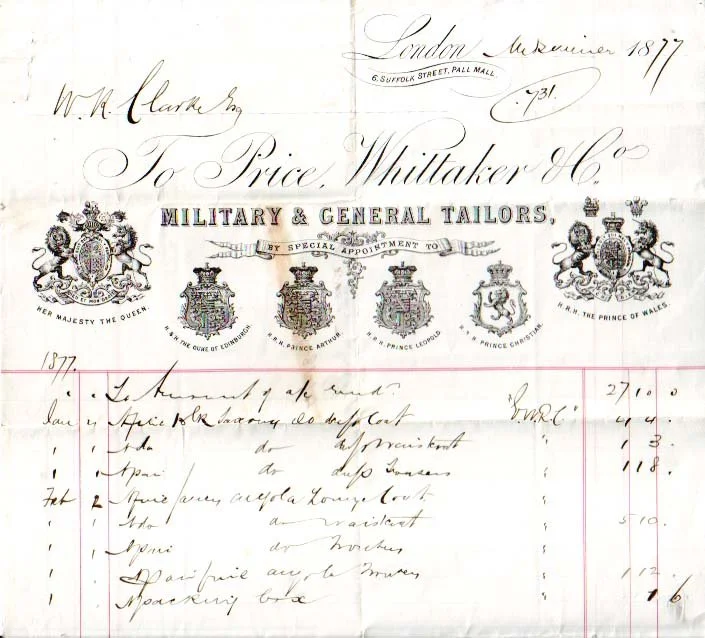 London 1877
6, SUFFOLK STREET, PALL MALL
731.
W. R. Clarke Esq
To Price, Whittaker & Co.
MILITARY & GENERAL TAILORS,
BY SPECIAL APPOINTMENT TO
HER MAJESTY THE QUEEN.
H.R.H. THE DUKE OF EDINBURGH.
H.R.H. PRINCE ARTHUR.
H.R.H. PRINCE LEOPOLD.
H.R.H. PRINCE CHRISTIAN.
H.R.H. THE PRINCE OF WALES.
1877.
" " To Amount of a/c rend. 27 10 0
Jan A fine blk Saxony do dress Coat 4 4 .
" " A do do dress Waistcoat " 1 3 .
" " A pair do dress Trousers " 1 18 .
Feb 2 A fine fancy angola Lounge Coat "
" " A do do Waistcoat " 5 10 .
" " A pair do Trousers "
" A pair fine angola Trousers " 1 12 .
" " A packing box " 1 6